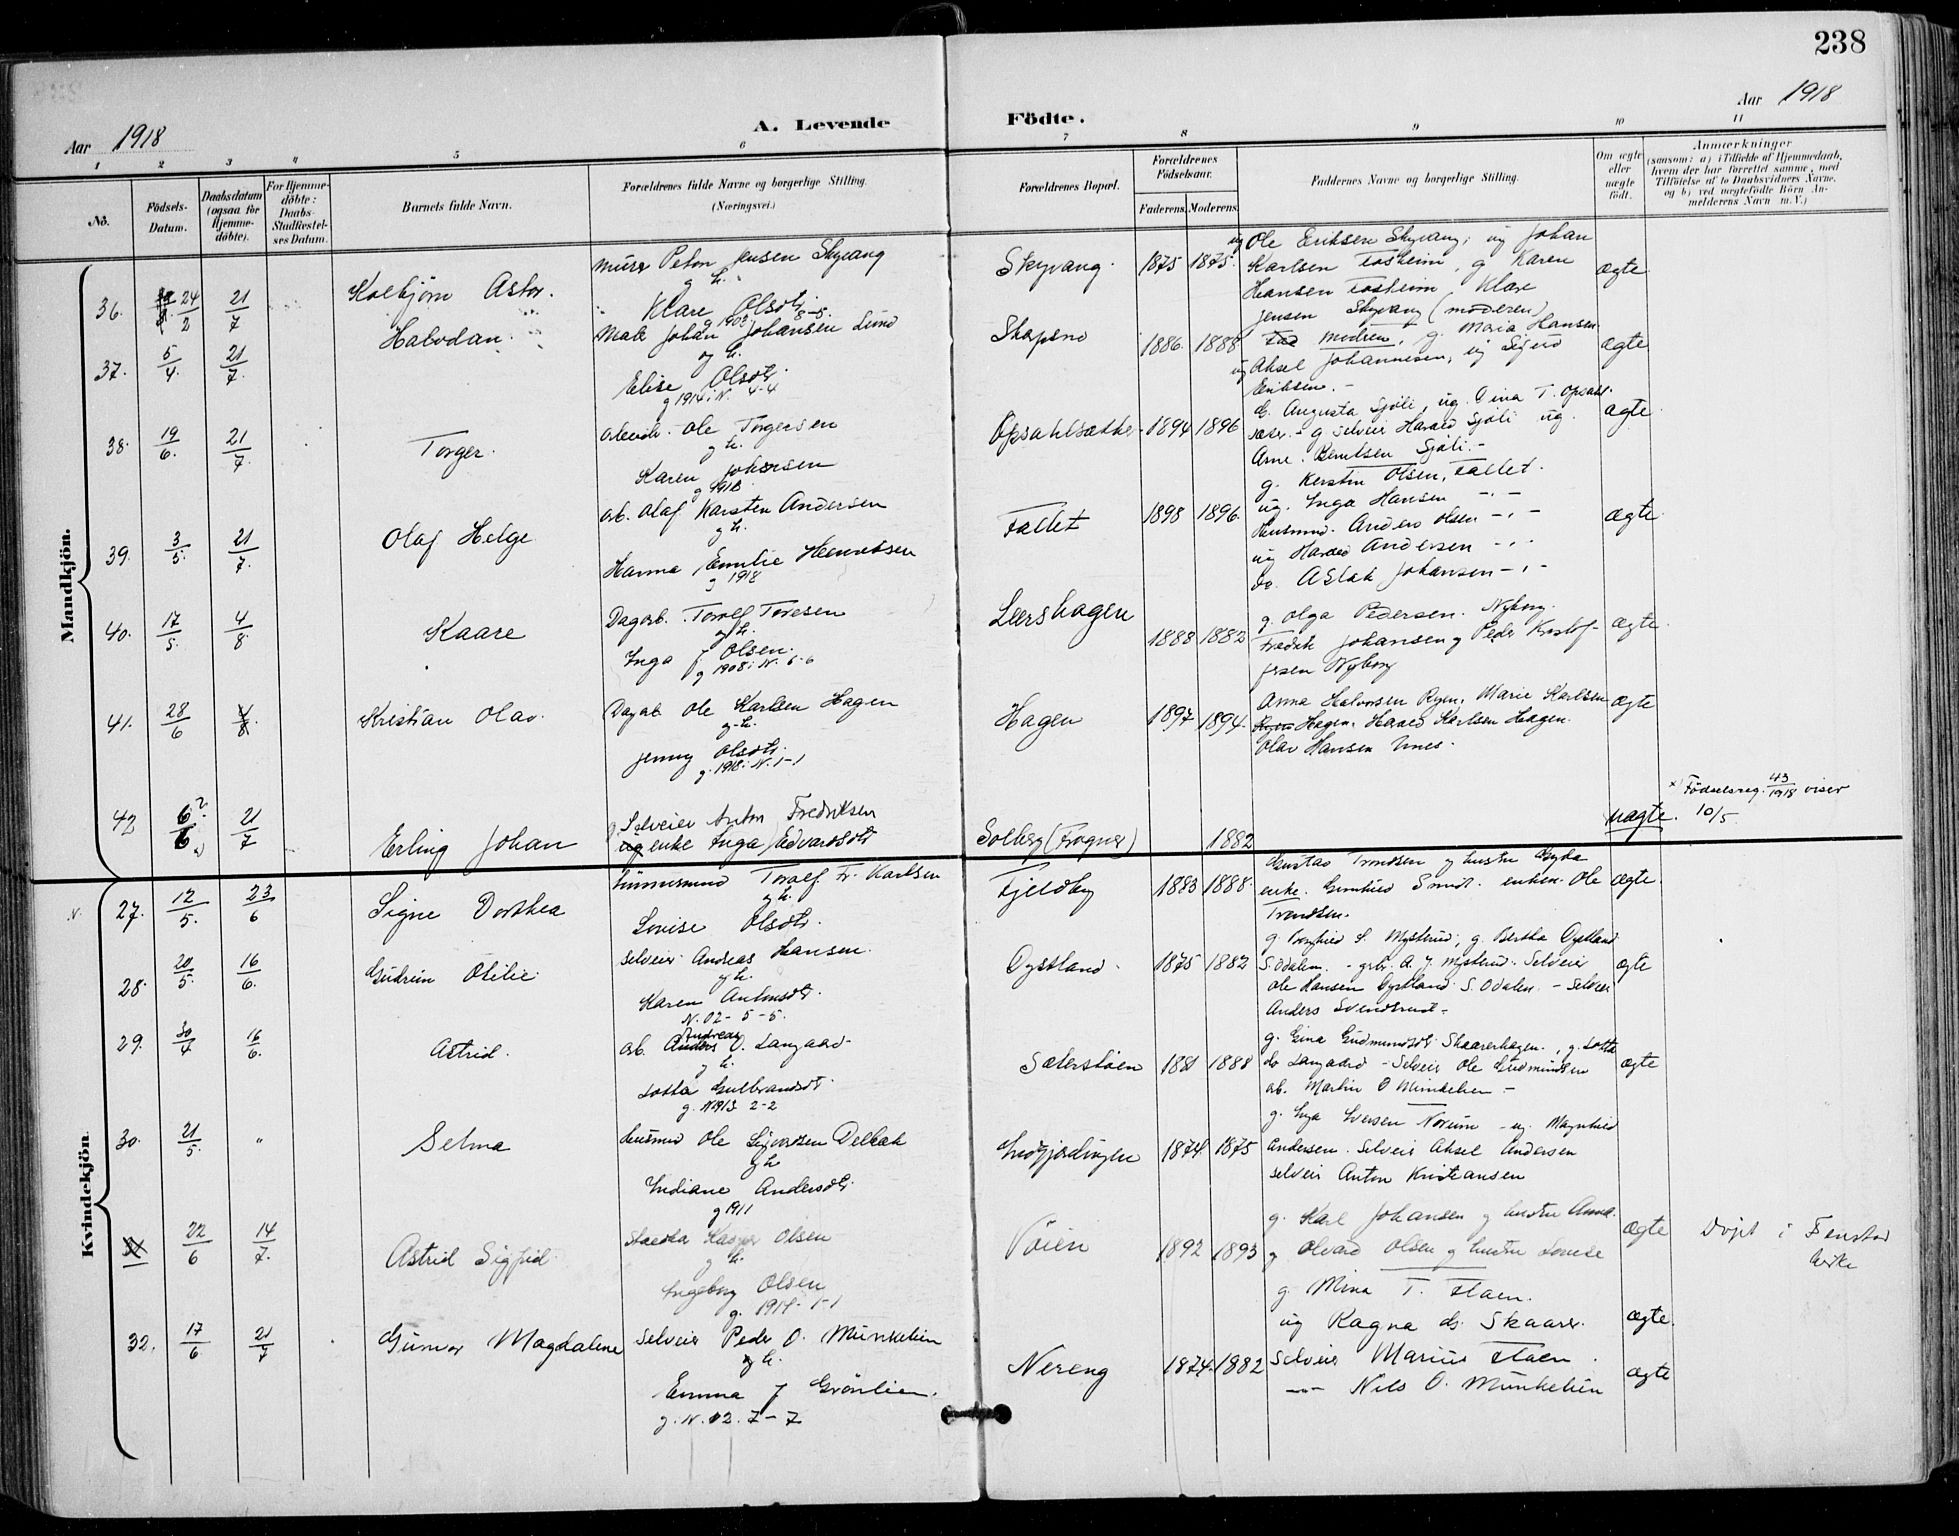 238
Aar 1918
A. Levende Födte.
Aar 1918
1 2 3 4 5 6 7 8 9 10 11
Nö.
Födsels-Datum.
Daabsdatum (ogsaa for Hjemme-döbte).
For Hjemme-döbte: Daabs-Stadfæstel-ses Datum.
Barnets fulde Navn.
Forældrenes fulde Navne og borgerlige Stilling.
(Næringsvei.)
Forældrenes Bopæl.
Forældrenes Födselsaar.
Faderens. Moderens.
Faddernes Navne og borgerlige Stilling.
Om ægte eller uægte födt.
Anmærkninger
(saasom: a) i Tilfælde af Hjemmedaab, hvem der har forrettet samme, med Tilföielse af to Daabsvidners Navne, og b) ved uægtefödte Börn An-melderens Navn m. V.)
Mandkjön.
36. 24/2 21/7 Kolbjörn Astor.
murer Peter Jensen Skyvang
g. h.
Klara Olsdtr.
g 1903 5-5.
Skyvang. 1875 1875.
ug Ole Eriksen Skyvang; ug Johan
Karlsen Fosheim, g Karen
Hansen Fosheim, Klare
Jensen Skyvang (moderen)
ægte
37. 5/4. 21/7. Halvdan.
Johan Johansen Lund
og h.
Elise Olsdtr.
g 1914 i N. 4-4
1886. 1888
modren, g. Maria Hansen
ug Aksel Johannesen, ug Sigrid
Eriksen. -
ægte
38. 19/6. 21/7. Torger.
Ole Torgersen
g h.
Karen Johansen
g 1918
Opsahlsæther 1894 1896
G. Augusta Sjöli, ug. Gina T. Opsahl
sæter. - g selveier Harald Sjöli ug.
Arne Berntsen Sjöli. -
ægte
39. 3/5. 21/7. Olaf Helge
arb. Olaf Karsten Andersen
g h.
Hanna Emilie Henriksen
g 1918
Fallet 1898 1896.
g. Kerstin Olsen, Fallet.
ug. Inga Hansen -"-
Husmand. Anders Olsen -"-
ug Harald Andersen -"-
do. Aslak Johansen -"-
ægte
40. 17/5. 4/8 Kaare
Dagarb. Toralf Toresen
og h.
Inga J. Olsen.
g 1908 i N. 6-6
Leershagen 1888 1882
g. Olga Pedersen. Nyborg.
Fredrik Johansen g Peder Kristof-
fersen Nyborg
ægte.
41. 28/6 4/8. Kristian Olav.
Dagarb. Ole Karlsen Hagen
g. h.
Jenny Olsdtr.
g. 1918 i N. 1-1
Hagen 1897 1894.
Anna Halvorsen Ryen, Marie Karlsen
Hagen. Harald Karlsen Hagen.
Olav Hansen
ægte
42 6?/6 x) 21/7 Erling Johan
Selveier Anton Fredriksen
enke Inga Edvardsdtr
Solberg (Frogner) 1882
uægte.
x) Födselsreg. 43/1918 viser
10/5
Kvindekjön.
27. 12/5. 23/6 Signe Dorthea
Tömmermand Toralf Fr. Karlsen
g h.
Lovise Olsdtr
Fjeldby 1883 1888.
Gustav Trondsen g hustru Gyda
enke. Gunhild Smidt. enkem. Ole
Trondsen.
ægte.
28. 20/5. 16/6. Gudrun Otilie
selveier Andreas Hansen.
g h.
Karen Antonsdtr.
N. 02 - 5-5.
Oystland. 1875 1882
g. Borghild S. Mysterud, g. Bertha Oystland
S. Odalen. - grbr. A. J. Mysterud. Selveier
Ole Hansen Oystland S. Odalen. - Selveier
Anders
ægte
29. 30/4 16/6. Astrid.
arb. Andreas O. Langaard
g h.
Lotta Gulbrandsdt.
g. N 1913 2-2
Sæterstöen 1881 1888
g. Gina Gudmundsdt. Skaarerhagen., g. Lotta
do Langaard - Selveier Ole Gudmundsen
arb. Martin O Munkelien -
ægte
30. 21/5. " Selma
husmd Ole Sigvardsen Delbak
g h
Indiane Andersdtr.
g 1911
1874 1875
g. Inga Iversen Norum - ug Magnhild
Andersen. Selveier Aksel Andersen
selveier Anton Kristiansen
31 22/6 14/7. Astrid Sigfrid
Kasper Olsen
g h.
Ingeborg Olsen
g. 1914 - 1-1
Töien 1892 1893
g. Karl Johansen g hustru Anna.
g Olvard Olsen g hustru Lovise
ægte
Döpt i Fenstad
kirke
32. 17/6 21/7 Gunvor Magdalene
Selveier Peder O. Munkelien
og h.
Emma J Grönlien.
g. N. 02. 7-7
Nereng 1874. 1882
g. Mina T. Flaen.
ug Ragna ds. Skaarer.
Selveier Marius Flaen.
-"- Nils O. Munkelien
ægte.
ægte